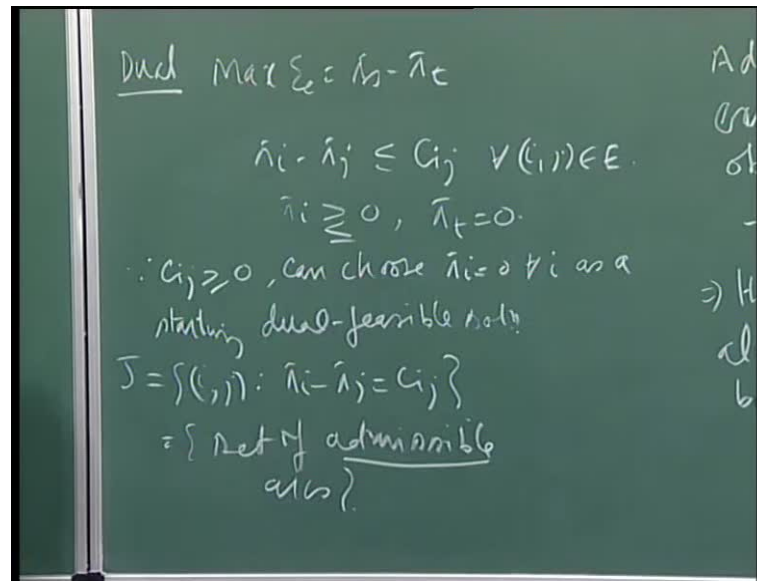 Dual Max ξ = πs - πt
πi - πj ≤ cij ∀(i,j)∈E.
πi ≷ 0, πt = 0.
∵ cij ≥ 0, can choose πi = 0 ∀ i as a
starting dual-feasible soln
J = {(i,j): πi - πj = cij}
= { set of admissible
arcs}.
Ad
⇒ H
al
b